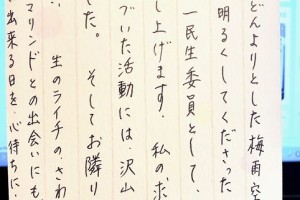 どんよりとした梅雨空
明るくしてくださった
一民生委員として、
し上げます。私の求
づいた活動には、沢山
た。そしてお隣り
生のライチの、さわ
マリンドとの出会いにも
出来る日を心待ちに